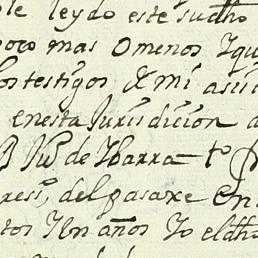 le leydo este su dho
poco mas o menos Y qu
os testigos & mi asis
en esta Jurisdicion a
Ju° de Ybarra — t°
del pasaxe en
tos Y Un años Yo el dho